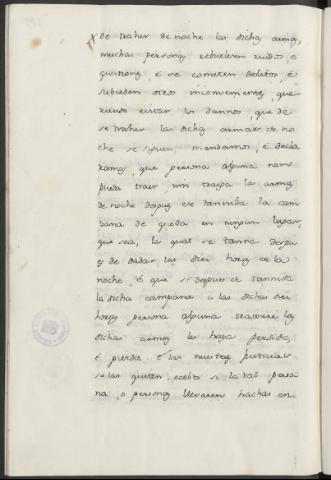 de traher de noche las dichas armas,
muchas personas rebuelven ruidos, e
questiones, e se cometen delitos, é
subceden otros inconvenientes, que
riendo evitar los daños, que de
se traher las dichas armas de no
che se siguen; mandamos, é decla
ramos, que persona alguna non
pueda traer, nin traiga las armas
de noche despues de tannida la cam
pana de queda en ningun lugar,
que sea, la qual se tanna despu
es de dadas las diez horas de la
noche, é que si despues de tannida
la dicha campana a las dichas diez
horas persona alguna traxere las
dichas armas las haya perdido,
é pierda é las nuestras justicias
se las quiten; ecebto si la tal perso
na, o personas llevaren hachas en